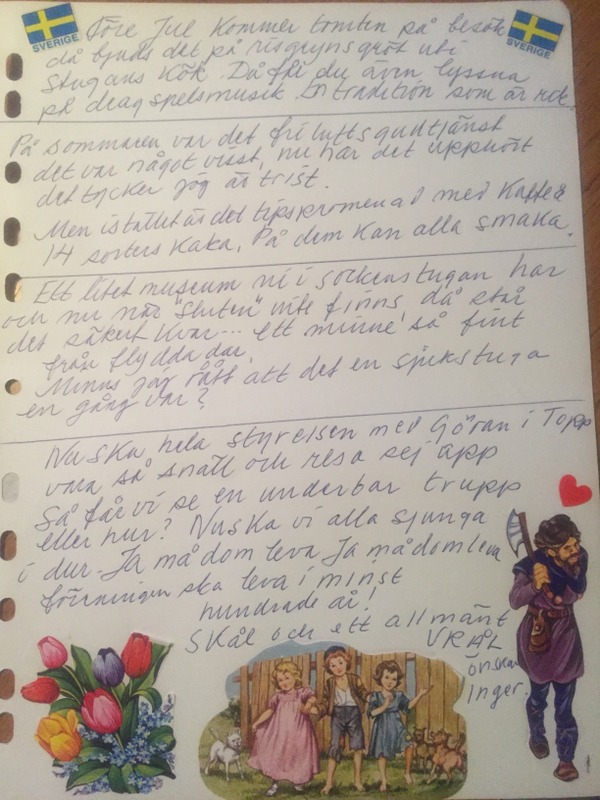 SVERIGE
SVERIGE
Före Jul Kommer tomten på besök
då bjuds det på risgrynsgröt uti
Stugans Kök. Då får du även lyssna
på dragspelsmusik. En tradition som är
På sommaren var det friluftsgudtjänst
det var något visst, nu har det upphört
det tycker jag är trist.
Men istället är det tipspromenad med Kaffe &
14 sorters Kaka. På dem Kan alla smaka.
Ett litet museum ni i sockenstugan har
och nu när "Sluten" inte finns, då står
det säkert kvar... ett minne så fint
från flydda dar.
Minns jag rätt att det en sjukstuga
en gång var?
Nu ska hela styrelsen med Göran i Topp
vara så snäll och resa sej opp
Så får vi se en underbar trupp
eller hur? Nu ska vi alla sjunga
i dur. Ja må dom leva Ja må dom leva
föreningen ska leva i minst
hundrade år!
Skål och ett allmänt
VRÅL
önskar
Inger.